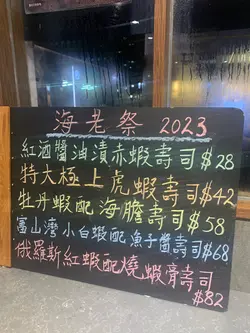 海老祭 2023
紅酒醬油漬赤蝦壽司$28
特大極上虎蝦壽司$42
牡丹蝦配海膽壽司$58
富山灣小白蝦配魚子醬壽司$68
俄羅斯紅蝦配燒蝦膏壽司
$82